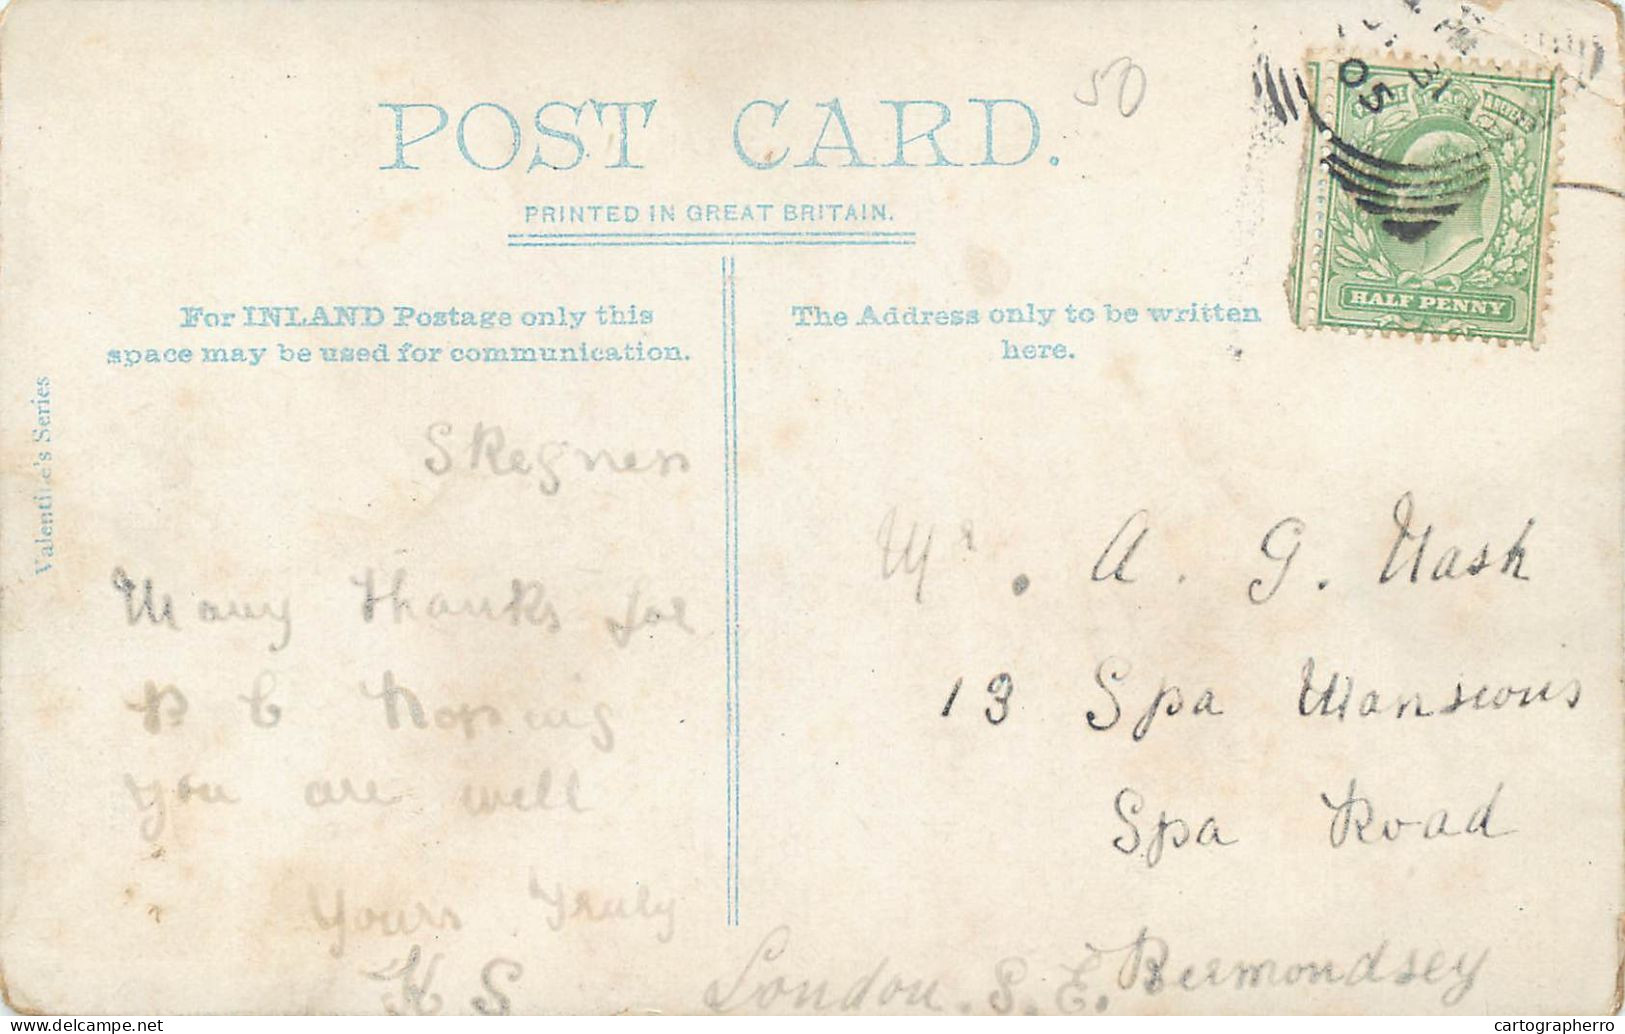 50
POST CARD.
PRINTED IN GREAT BRITAIN.
For INLAND Postage only this
space may be used for communication.
The Address only to be written
here.
Valentine's Series
HALF PENNY
PM
21
05
Skegness
Many thanks for
P C Hoping
you are well
Yours Truly
K S
Mr. A. G. Nash
13 Spa Mansions
Spa Road
Bermondsey
London. S. E.
delcampe.net
cartographerro